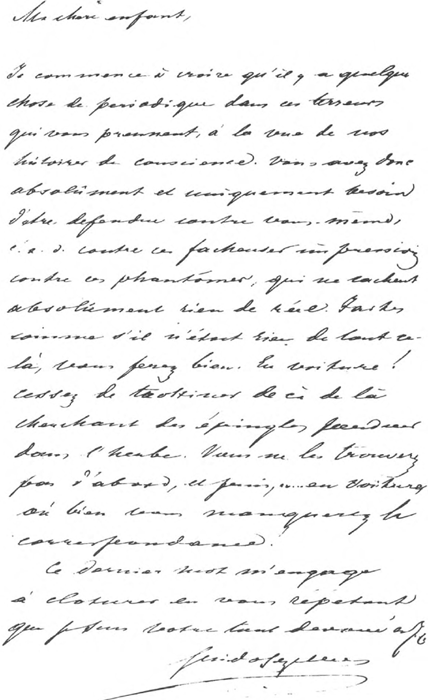 Ma chère enfant,
Je commence à croire qu'il y a quelque
chose de periodique dans ces terreurs
qui vous prennent, à la vue de vos
histoires de conscience. Vous avez donc
absolûment et uniquement besoin
d'etre defendue contre vous-même,
c. a. d. contre ces facheuses impressions
contre ces phantômes, qui ne cachent
absolûment rien de réel. Faites
comme s'il n'était rien de tout ce-
là, vous ferez bien. En voiture!
cessez de trottiner de çà de là
cherchant des épingles perdues
dans l'herbe. Vous ne les trouvez
pas d'abord, et puis, .... en voiture
où bien vous manquerez la
correspondance!
Ce dernier mot m'engage
à cloturer en vous répétant
que je suis votre tout devoué en J. C.